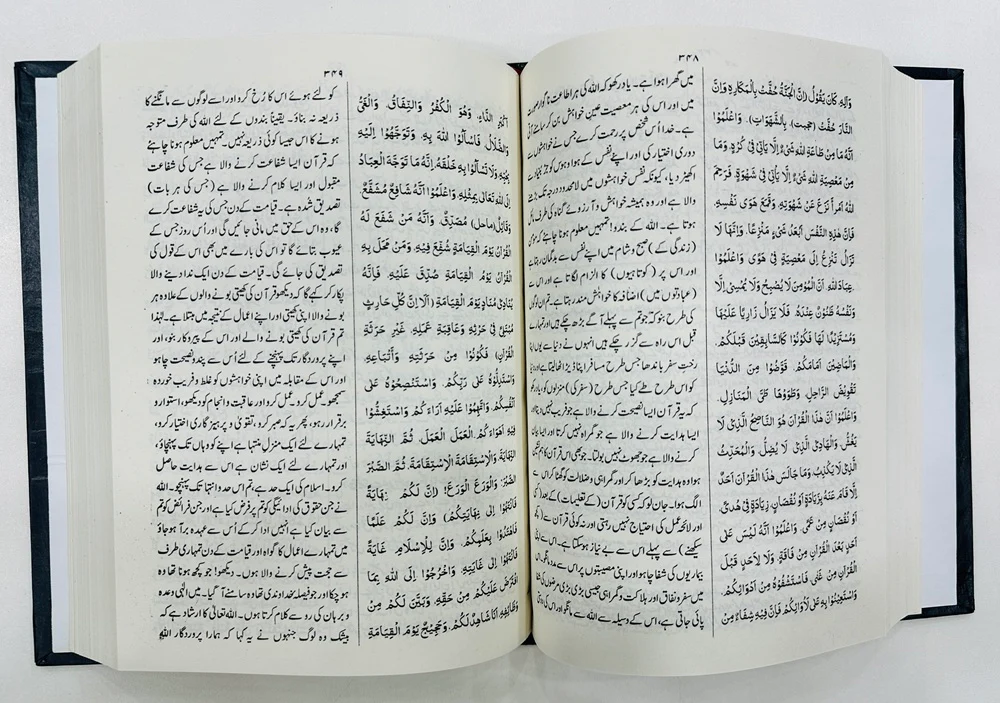 ۳۴۸
وَاٰلِهٖ، كَانَ يَقُوْلُ: (اِنَّ الْجَنَّةَ حُفَّتْ بِالْمَكَارِهِ وَاِنَّ
النَّارَ حُفَّتْ (حجبت)، بِالشَّهَوَاتِ)، وَاعْلَمُوْا
اَنَّهٗ مَا مِنْ طَاعَةِ اللهِ شَىْءٌ اِلَّا يَاْتِىْ فِىْ كُرْهٍ، وَمَا
مِنْ مَعْصِيَةِ اللهِ شَىْءٌ اِلَّا يَاْتِىْ فِىْ شَهْوَةٍ، فَرَحِمَ
اللهُ امْرَأً نَزَعَ عَنْ شَهْوَتِهٖ، وَقَمَعَ هَوٰى نَفْسِهٖ،
فَاِنَّ هٰذِهِ النَّفْسَ اَبْعَدُ شَىْءٍ مَنْزِعًا، وَاِنَّهَا لَا
تَزَالُ تَنْزِعُ اِلٰى مَعْصِيَةٍ فِىْ هَوًى وَاعْلَمُوْا
عِبَادَ اللهِ، اَنَّ الْمُؤْمِنَ لَا يُصْبِحُ وَلَا يُمْسِىْ اِلَّا
وَنَفْسُهٗ ظَنُوْنٌ عِنْدَهٗ، فَلَا يَزَالُ زَارِيًا عَلَيْهَا
وَمُسْتَزِيْدًا لَهَا فَكُوْنُوْا كَالسَّابِقِيْنَ قَبْلَكُمْ،
وَالْمَاضِيْنَ اَمَامَكُمْ، قَوَّضُوْا مِنَ الدُّنْيَا
تَقْوِيْضَ الرَّاحِلِ، وَطَوَوْهَا طَىَّ الْمَنَازِلِ۔
وَاعْلَمُوْا اَنَّ هٰذَا الْقُرْاٰنَ هُوَ النَّاصِحُ الَّذِىْ لَا
يَغُشُّ، وَالْهَادِى الَّذِىْ لَا يُضِلُّ، وَالْمُحَدِّثُ
الَّذِىْ لَا يَكْذِبُ، وَمَا جَالَسَ هٰذَا الْقُرْاٰنَ اَحَدٌ
اِلَّا قَامَ عَنْهُ بِزِيَادَةٍ اَوْ نُقْصَانٍ، زِيَادَةٍ فِىْ هُدًى،
اَوْ نُقْصَانٍ مِنْ عَمًى، وَاعْلَمُوْا اَنَّهٗ لَيْسَ عَلٰى
اَحَدٍ بَعْدَ الْقُرْاٰنِ مِنْ فَاقَةٍ، وَلَا لِاَحَدٍ قَبْلَ
الْقُرْاٰنِ مِنْ غِنًى، فَاسْتَشْفُوْهُ مِنْ اَدْوَائِكُمْ،
وَاسْتَعِيْنُوْا بِهٖ عَلٰى لَاْوَائِكُمْ، فَاِنَّ فِيْهِ شِفَاءً مِنْ
میں گھرا ہوا ہے۔ یاد رکھو کہ اللہ کی ہر اطاعت ناگوار صورت
میں اور اس کی ہر معصیت عین خواہش بن کر سامنے آتی
ہے۔ خدا اُس شخص پر رحمت کرے جس نے خواہشوں سے
دوری اختیار کی اور اپنے نفس کے ہوا و ہوس کو جڑ بنیاد سے
اکھیڑ دیا، کیونکہ نفس خواہشوں میں لامحدود درجہ تک بڑھنے
والا ہے اور وہ ہمیشہ خواہش و آرزوئے گناہ کی طرف مائل
ہوتا ہے۔ اللہ کے بندو! تمہیں معلوم ہونا چاہئے کہ مومن
(زندگی کے) صبح و شام میں اپنے نفس سے بدگمان رہتا ہے
اور اس پر (کوتاہیوں) کا الزام لگاتا ہے اور اس سے
(عبادتوں میں) اضافہ کا خواہشمند رہتا ہے۔ تم ان لوگوں
کی طرح بنو کہ جو تم سے پہلے آگے بڑھ چکے ہیں اور تمہارے
قبل اس راہ سے گزر چکے ہیں انہوں نے دنیا سے یوں اپنا
رخت سفر باندھا جس طرح مسافر اپنا ڈیرا اٹھا لیتا ہے اور دنیا
کو اس طرح طے کیا جس طرح (سفر کی) منزلوں کو، یاد رکھو
کہ یہ قرآن ایسا نصیحت کرنے والا ہے جو فریب نہیں دیتا اور
ایسا ہدایت کرنے والا ہے جو گمراہ نہیں کرتا اور ایسا بیان
کرنے والا ہے جو جھوٹ نہیں بولتا۔ جو بھی اس قرآن کا ہم نشین
ہوا وہ ہدایت کو بڑھا کر اور گمراہی و ضلالت کو گھٹا کر اس سے
الگ ہوا۔ جان لو کہ کسی کو قرآن (کے تعلیمات) کے بعد (کسی
اور لائحہ عمل کی احتیاج نہیں رہتی اور نہ کوئی قرآن سے (کچھ
سیکھنے) سے پہلے اس سے بے نیاز ہو سکتا ہے۔ اس سے اپنی
بیماریوں کی شفا چاہو اور اپنی مصیبتوں پر اس سے مدد مانگو۔ اس
میں کفر و نفاق اور ہلاکت و گمراہی جیسی بڑی بڑی مرضوں کی شفا
پائی جاتی ہے، اس کے وسیلہ سے اللہ سے مانگو اور اس کی دوستی
۳۴۹
اَكْبَرِ الدَّاءِ، وَهُوَ الْكُفْرُ وَالنِّفَاقُ، وَالْغَىُّ
وَالضَّلَالُ، فَاسْاَلُوا اللهَ بِهٖ، وَتَوَجَّهُوْا اِلَيْهِ
بِحُبِّهٖ، وَلَا تَسْاَلُوْا بِهٖ خَلْقَهٗ، اِنَّهٗ مَا تَوَجَّهَ الْعِبَادُ
اِلَى اللهِ تَعَالٰى بِمِثْلِهٖ، وَاعْلَمُوْا اَنَّهٗ شَافِعٌ مُشَفَّعٌ،
وَقَائِلٌ (ماحل) مُصَدَّقٌ، وَاَنَّهٗ مَنْ شَفَعَ لَهُ
الْقُرْاٰنُ يَوْمَ الْقِيَامَةِ شُفِّعَ فِيْهِ، وَمَنْ مَحَلَ بِهِ
الْقُرْاٰنُ يَوْمَ الْقِيَامَةِ صُدِّقَ عَلَيْهِ، فَاِنَّهٗ
يُنَادِىْ مُنَادٍ يَوْمَ الْقِيَامَةِ (اَلَا اِنَّ كُلَّ حَارِثٍ
مُبْتَلًى فِىْ حَرْثِهٖ وَعَاقِبَةِ عَمَلِهٖ، غَيْرَ حَرَثَةِ
الْقُرْاٰنِ) فَكُوْنُوْا مِنْ حَرَثَتِهٖ وَاَتْبَاعِهٖ،
وَاسْتَدِلُّوْهُ عَلٰى رَبِّكُمْ، وَاسْتَنْصِحُوْهُ عَلٰى
اَنْفُسِكُمْ، وَاتَّهِمُوْا عَلَيْهِ اٰرَاءَكُمْ، وَاسْتَغِشُّوْا
فِيْهِ اَهْوَاءَكُمْ، الْعَمَلَ الْعَمَلَ، ثُمَّ النِّهَايَةَ
النِّهَايَةَ، وَالْاِسْتِقَامَةَ الْاِسْتِقَامَةَ، ثُمَّ الصَّبْرَ
الصَّبْرَ، وَالْوَرَعَ الْوَرَعَ! (اِنَّ لَكُمْ نِهَايَةً
فَانْتَهُوْا اِلٰى نِهَايَتِكُمْ) وَاِنَّ لَكُمْ عَلَمًا
فَاهْتَدُوْا بِعَلَمِكُمْ، وَاِنَّ لِلْاِسْلَامِ غَايَةً
فَانْتَهُوْا اِلٰى غَايَتِهٖ، وَاخْرُجُوْا اِلَى اللهِ بِمَا
افْتَرَضَ عَلَيْكُمْ مِنْ حَقِّهٖ، وَبَيَّنَ لَكُمْ مِنْ
وَظَائِفِهٖ، اَنَا شَاهِدٌ لَكُمْ، وَحَجِيْجٌ يَوْمَ الْقِيَامَةِ
کو لئے ہوئے اس کا رُخ کرو اور اسے لوگوں سے مانگنے کا
ذریعہ نہ بناؤ۔ یقیناً بندوں کے لئے اللہ کی طرف متوجہ
ہونے کا اس جیسا کوئی ذریعہ نہیں۔ تمہیں معلوم ہونا چاہئے
کہ قرآن ایسا شفاعت کرنے والا ہے جس کی شفاعت
مقبول اور ایسا کلام کرنے والا ہے (جس کی ہر بات)
تصدیق شدہ ہے۔ قیامت کے دن جس کی یہ شفاعت کرے
گا، وہ اس کے حق میں مانی جائیں گی اور اُس روز جس کے
عیوب بتائے گا تو اس کی بارے میں بھی اس کے قول کی
تصدیق کی جائے گی۔ قیامت کے دن ایک ندا دینے والا
پکار کر کہے گا کہ دیکھو قرآن کی کھیتی بونے والوں کے علاوہ ہر
بونے والا اپنی کھیتی اور اپنے اعمال کے نتیجہ میں مبتلا ہے۔ لہٰذا
تم قرآن کی کھیتی بونے والے اور اس کے پیروکار بنو، اور
اپنے پروردگار تک پہنچنے کے لئے اُس سے پند و نصیحت چاہو
اور اس کے مقابلہ میں اپنی خواہشوں کو غلط و فریب خوردہ
سمجھو عمل کرو عمل کرو اور عاقبت و انجام کو دیکھو، استوار و
برقرار رہو، پھر یہ کہ صبر کرو، تقویٰ و پرہیزگاری اختیار کرو،
تمہارے لئے ایک منزلِ منتہا ہے اپنے کو وہاں تک پہنچاؤ،
اور تمہارے لئے ایک نشان ہے اس سے ہدایت حاصل
کرو۔ اسلام کی ایک حد ہے، تم اس حد و انتہا تک پہنچو۔ اللہ
نے جن حقوق کی ادائیگی کو تم پر فرض کیا ہے اور جن فرائض کو تم
سے بیان کیا ہے انہیں ادا کر کے اُس سے عہدہ برآ ہو جاؤ
میں تمہارے اعمال کا گواہ اور قیامت کے دن تمہاری طرف
سے حجت پیش کرنے والا ہوں۔ دیکھو! جو کچھ ہونا تھا وہ
ہو چکا اور جو فیصلہ خداوندی تھا وہ سامنے آ گیا۔ میں الٰہی وعدہ
و برہان کی رو سے کلام کرتا ہوں۔ اللہ تعالیٰ کا ارشاد ہے کہ
بیشک وہ لوگ جنہوں نے یہ کہا کہ ہمارا پروردگار اللہ